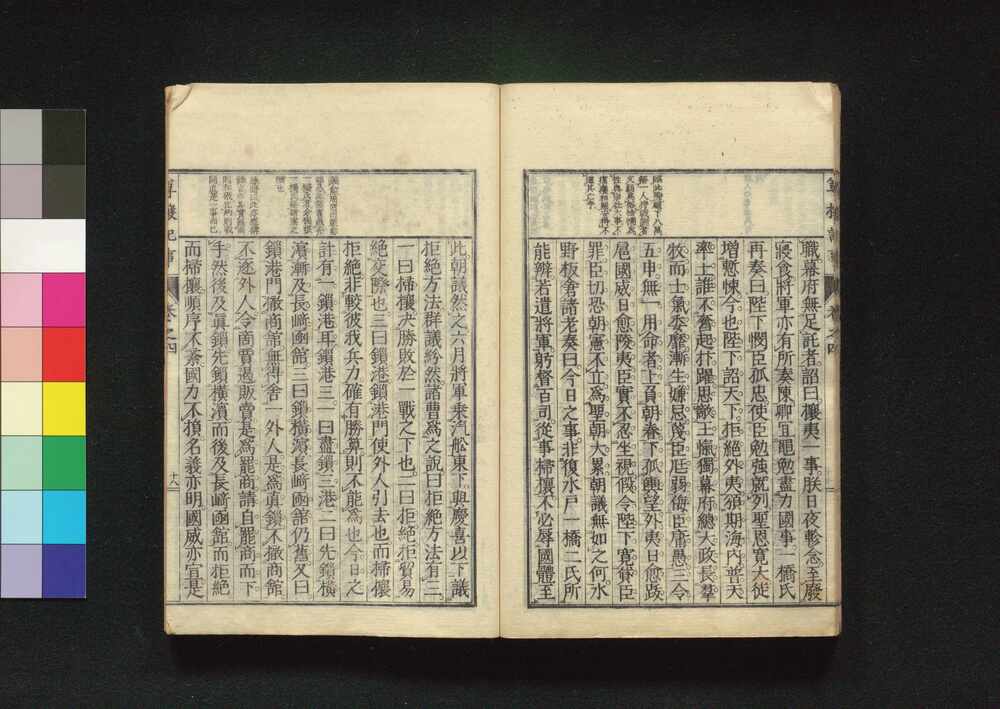 職幕府無足託者詔曰攘夷一事朕日夜軫念至廢
寢食將軍亦有所奏陳卿宜黽勉盡力國事一橋氏
再奏曰陛下憫臣孤忠使臣勉強就列聖恩寬大徒
增慙悚今也陛下詔天下拒絕外夷須期海內普天
率土誰不奮起抃躍思敵王愾獨幕府總大政長羣
牧而士氣委靡漸生嫌忌蔑臣尫弱侮臣庸愚三令
五申無一用命者上負朝眷下孤輿望外夷日愈跋
扈國威日愈陵夷臣實不忍生視假令陛下寬貸臣
罪臣切恐朝憲不立爲聖朝大累朝議無如之何水
野板倉諸老奏曰今日之事非復水戶一橋二氏所
能辨若遣將軍躬督百司從事掃攘不必辱國體至
此朝議然之六月將軍乘汽船東下與慶喜以下議
拒絕方法群議紛然諸曹爲之說曰拒絕方法有三
一曰掃攘決勝敗於一戰之下也二曰拒絕拒貿易
絕交際也三曰鎖港鎖港門使外人引去也而掃攘
拒絕非較彼我兵力確有勝算則不能爲也今日之
計有一鎖港耳鎖港三一曰盡鎖三港二曰先鎖橫
濱漸及長崎函館三曰鎖橫濱長崎函館仍舊又曰
鎖港門撤商館無得舍一外人是爲眞鎖不撤商館
不逐外人令商賈過販賣是爲罷商請自罷商而下
手然後及眞鎖先鎖橫濱而後及長崎函館而拒絕
而掃攘順序不紊國力不損名義亦明國威亦宜是
卷之四
十八